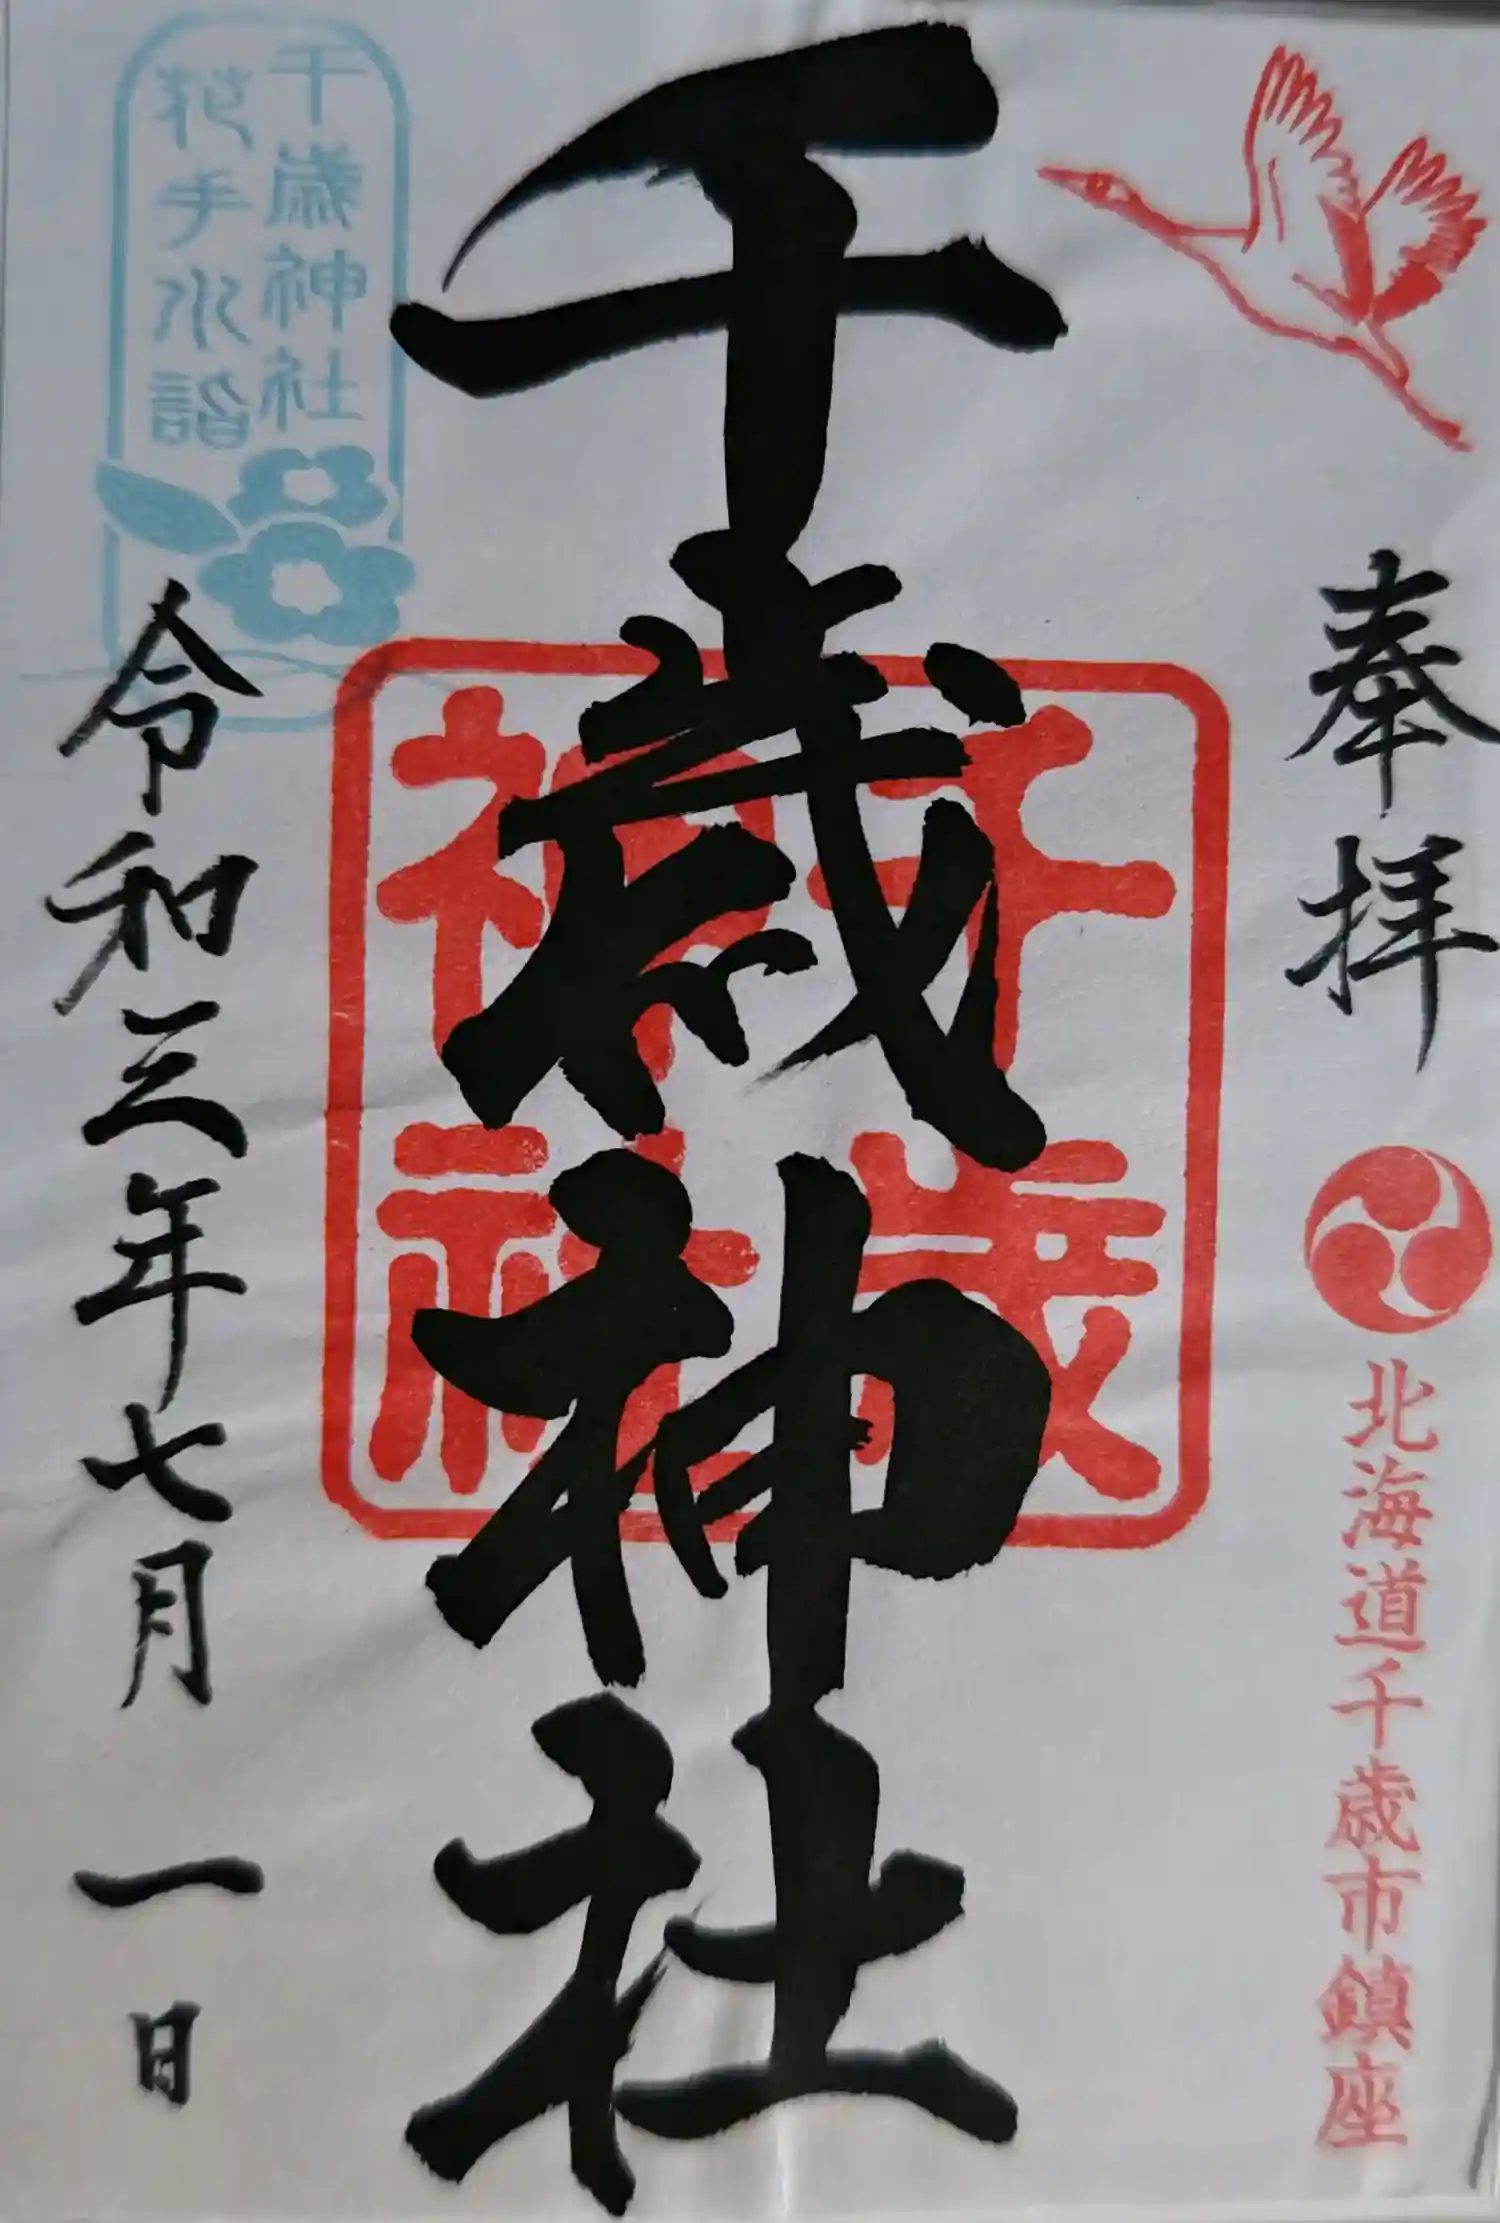 奉拝
北海道千歳市鎮座
千歳神社
千歳
神社
令和三年七月一日
千歳神社
花手水詣